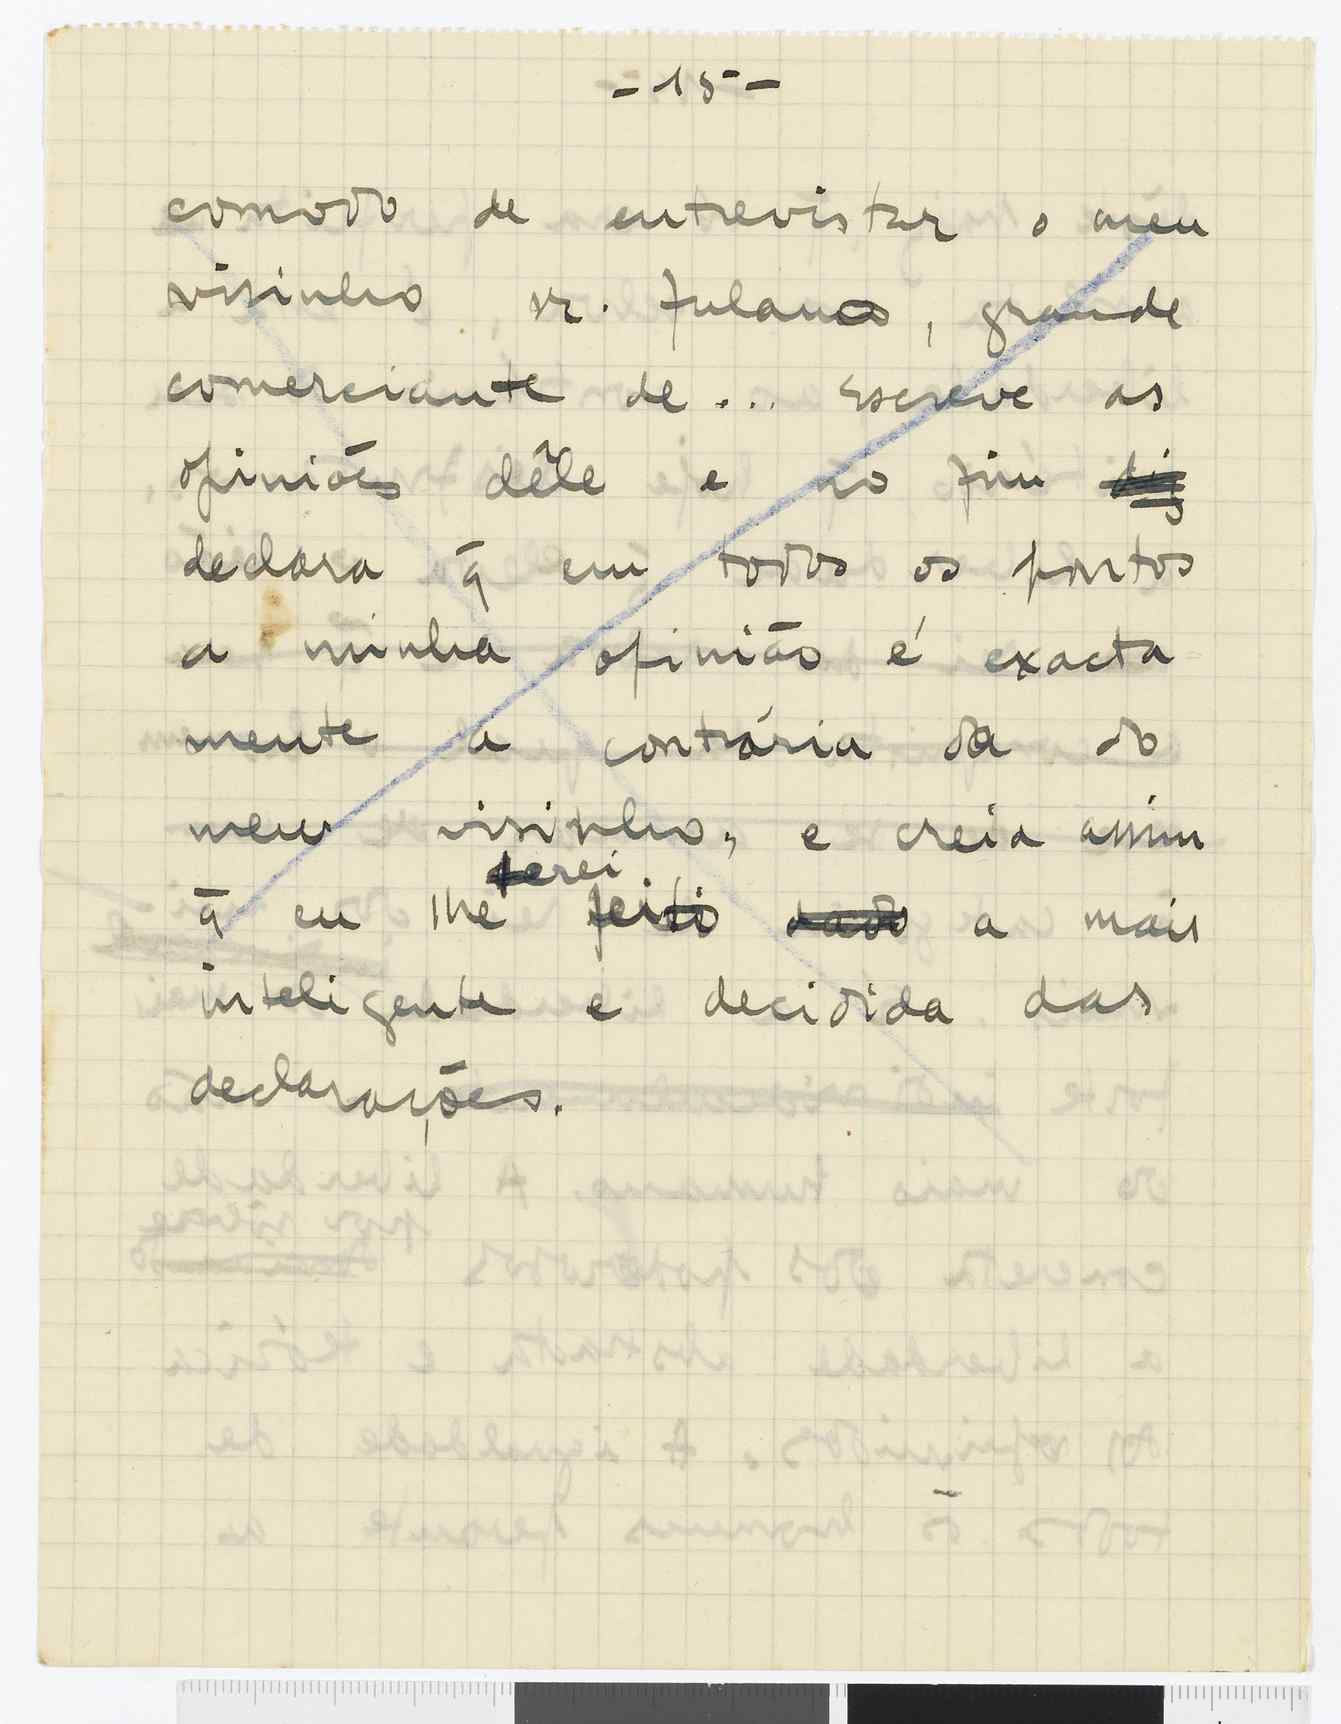 - 15 -
comodo de entrevistar o meu
visinho sr. fulano, grande
comerciante de... Escreve as
opiniões dêle e no fim
declara q̄ em todos os pontos
a minha opinião é exacta
mente a contrária da do
meu visinho, e creia assim
terei
q̄ eu lhe feito dado a mais
inteligente e decidida das
declarações.